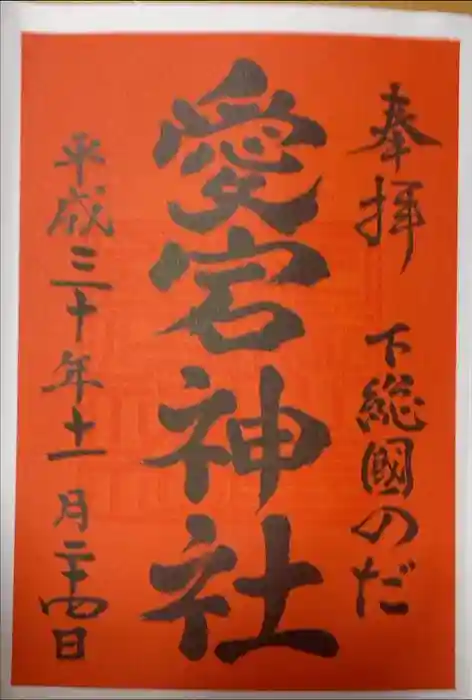 奉拝 下総國のだ
愛宕神社
平成三十年十一月二十四日